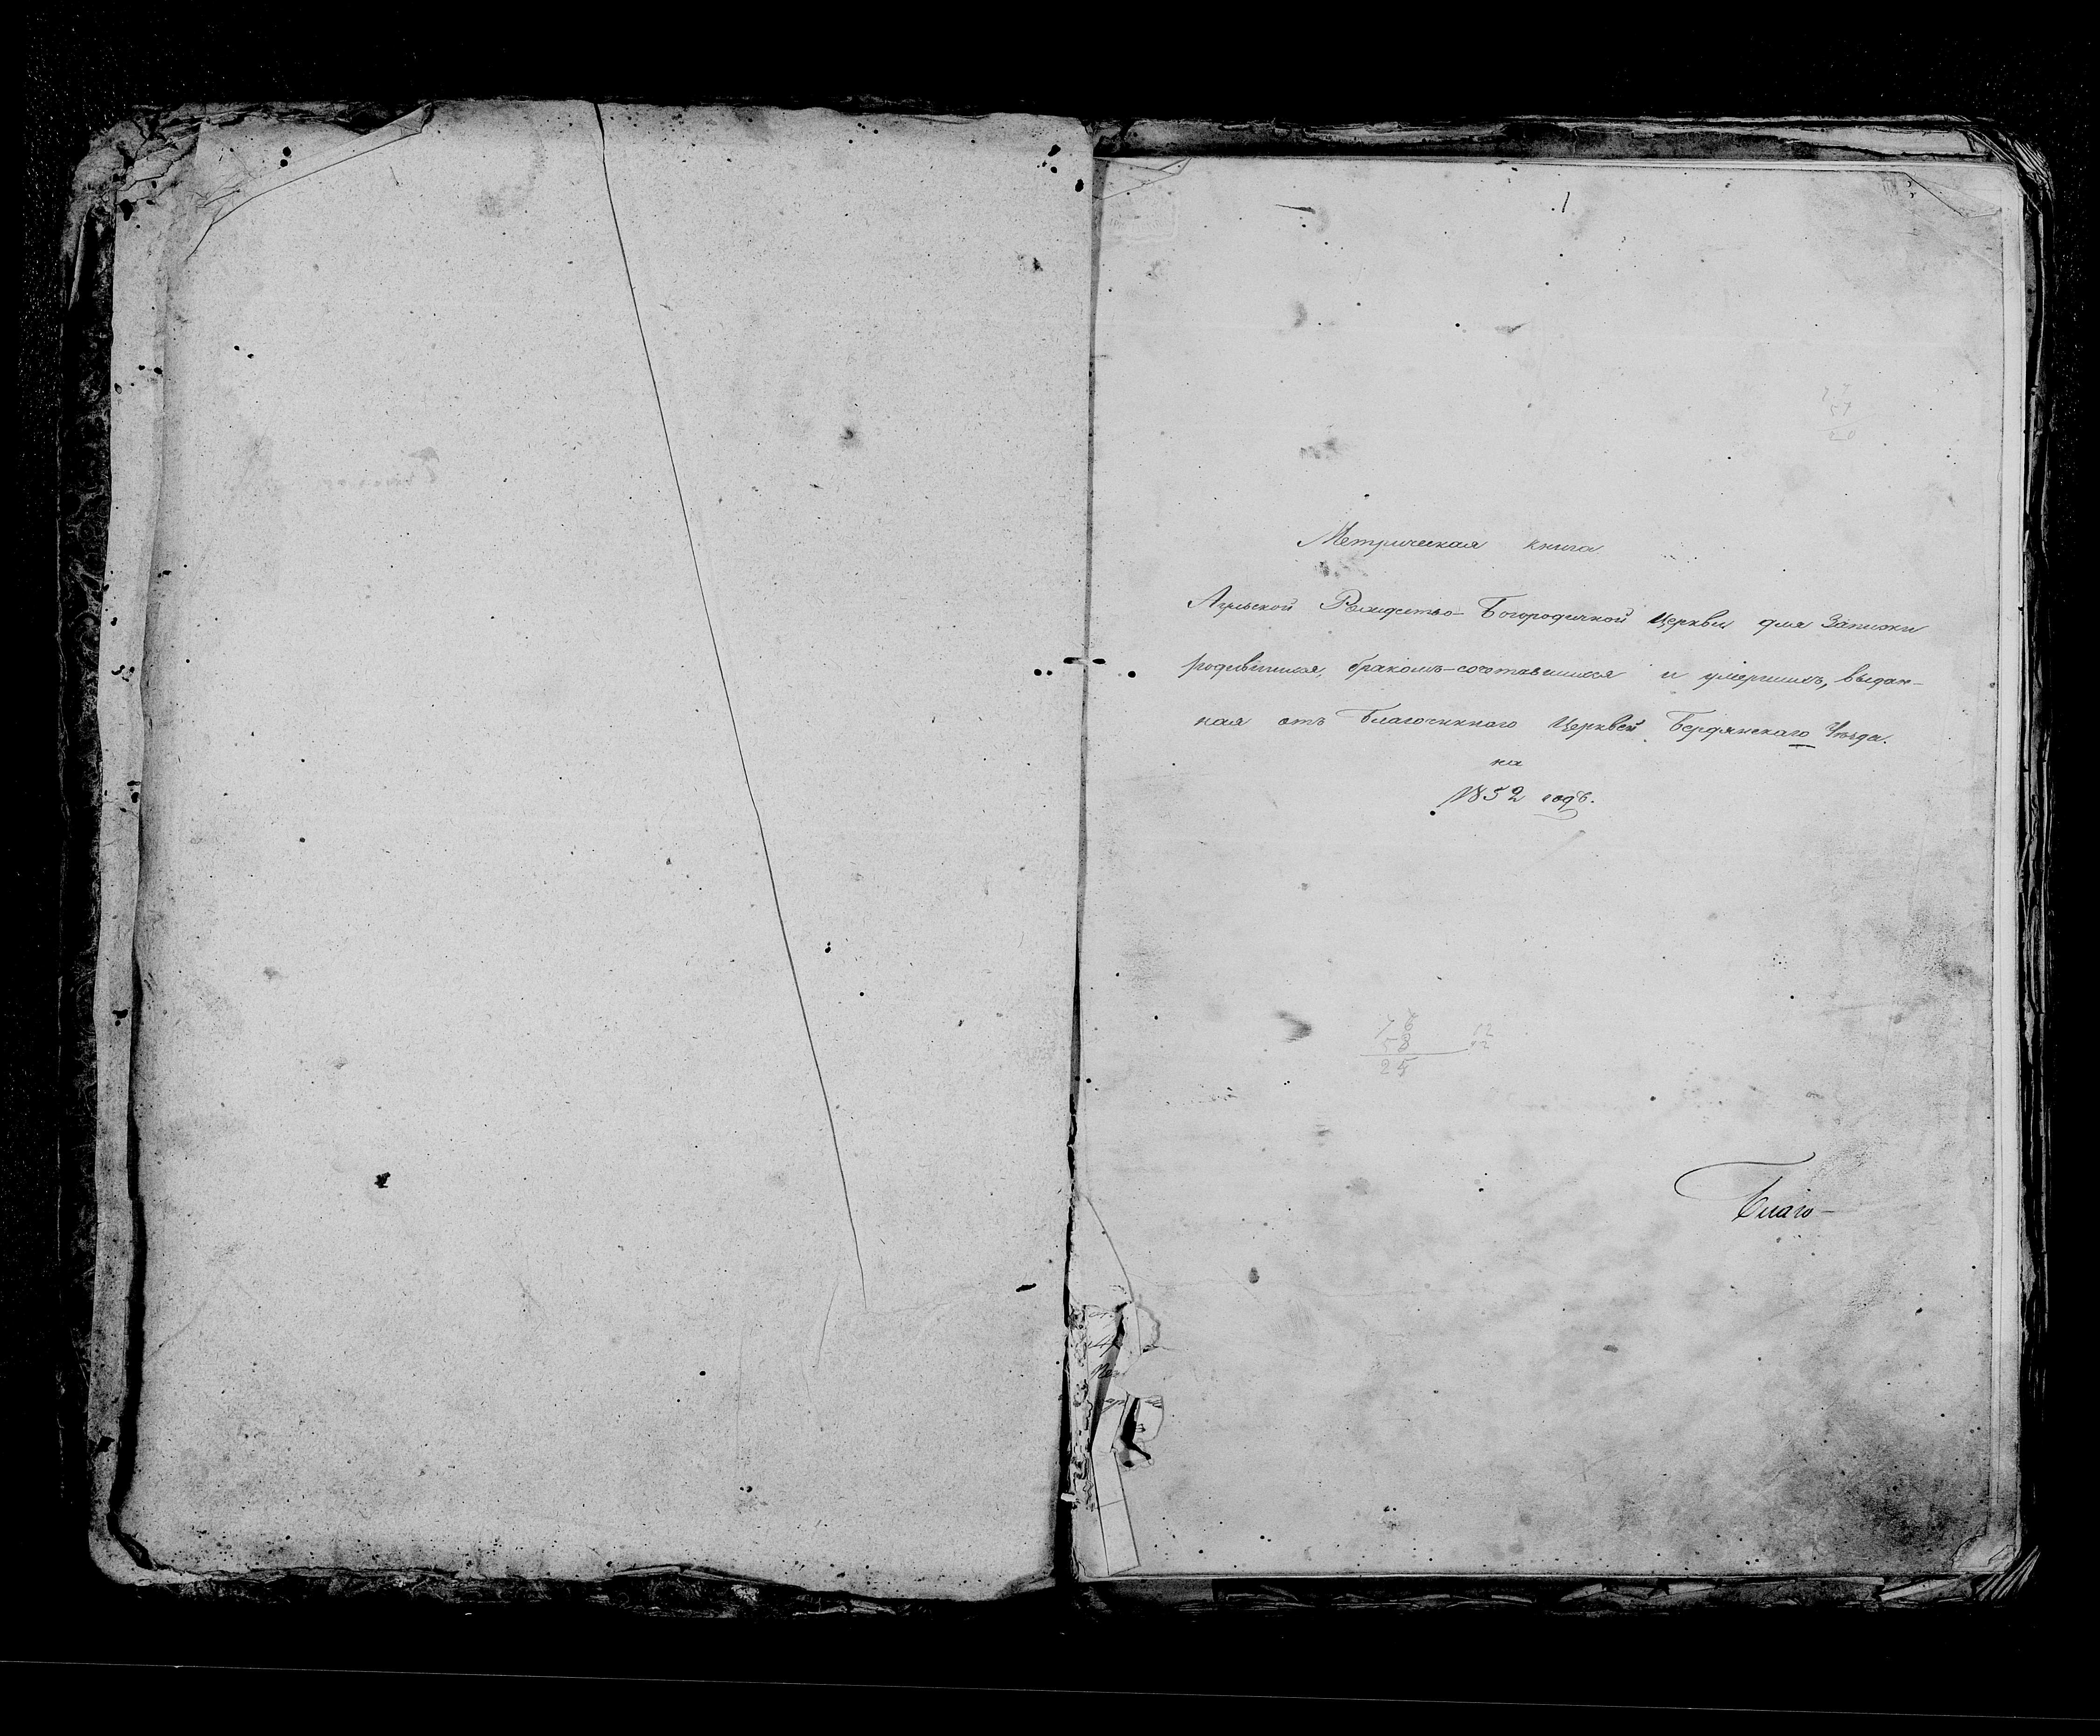 1
Метрическая книга
Агульской Рождество-Богородичной Церкви для Записки
родившихся, бракомъ-сочетавшихся и умершихъ, выдан-
ная отъ Благочиннаго Церквей Бердянскаго Уѣзда.
на
1852 годъ.
Благо-